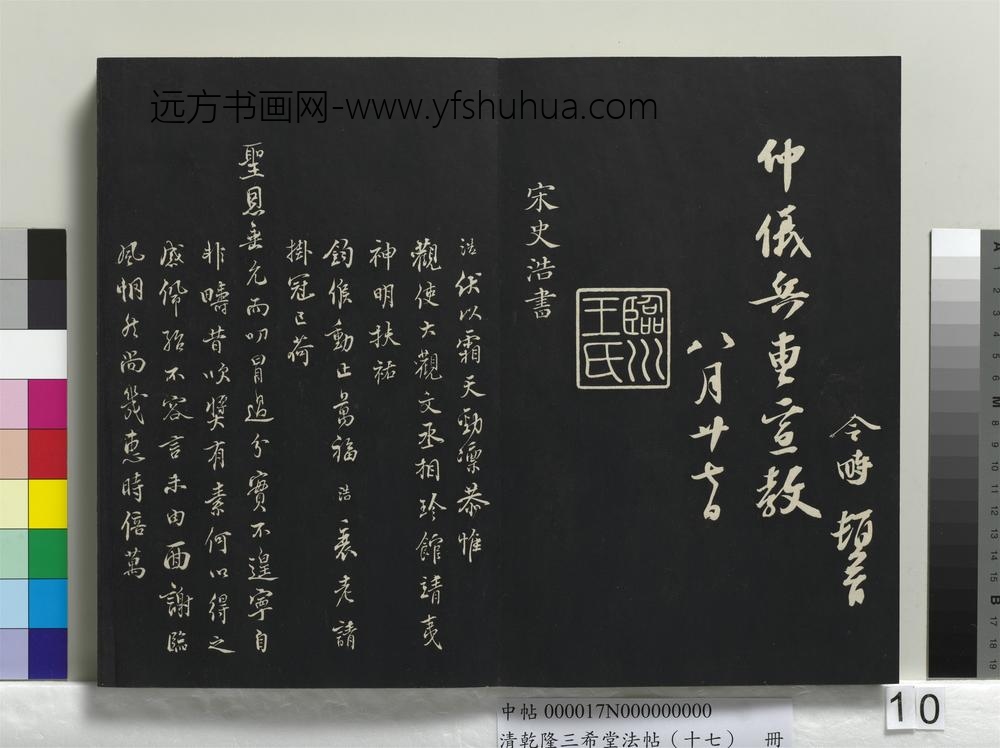 远方书画网-www.yfshuhua.com
令畤 頓首
仲儀兵曹宣教
八月廿七日
臨川王氏
宋史浩書
浩伏以霜天勁凜恭惟
觀使大觀文丞相珍館靖夷
神明扶祐
鈞候動止萬福浩衰老請
掛冠已荷
聖恩垂允而叨冒過分實不遑寧自
非疇昔吹獎有素何以得之
感佩殆不容言未由面謝臨
風惘然尚幾惠時倍萬
中帖 000017N000000000
清乾隆三希堂法帖（十七） 冊
10